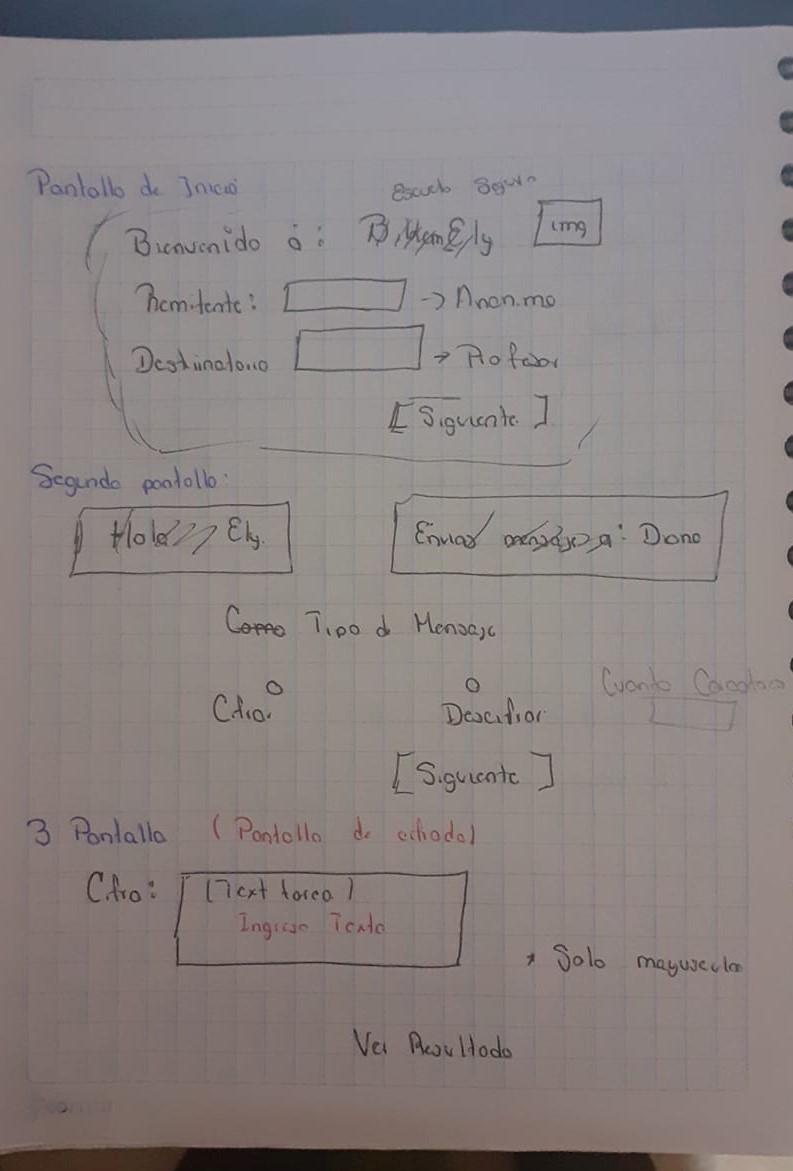 Pantalla de Inicio
Escuela Segura
Bienvenido a: img
Remitente: -> Anonimo
Destinatario -> Profesor
[Siguiente]
Segunda pantalla:
Hola Ely.
Enviar mensaje a: Dano
Como Tipo d Mensaje
Cuanto
Cifrar Descifrar
[Siguiente]
3 Pantalla (Pantalla de cifrado)
Cifra: (Text tarea)
Ingrese Texto
* Solo mayuscula
Ver Resultado